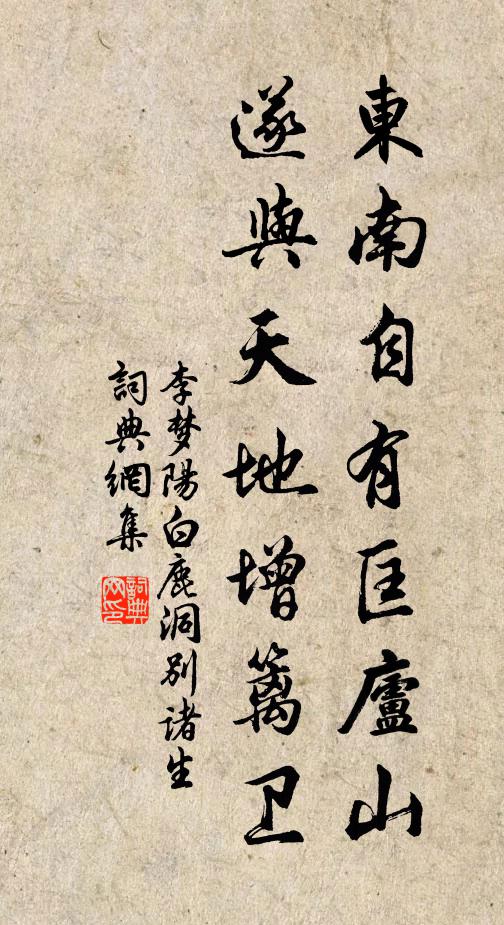 東南自有匡廬山
遂與天地增篱卫
李梦陽白鹿洞别诸生
詞典網集
詞典
网印